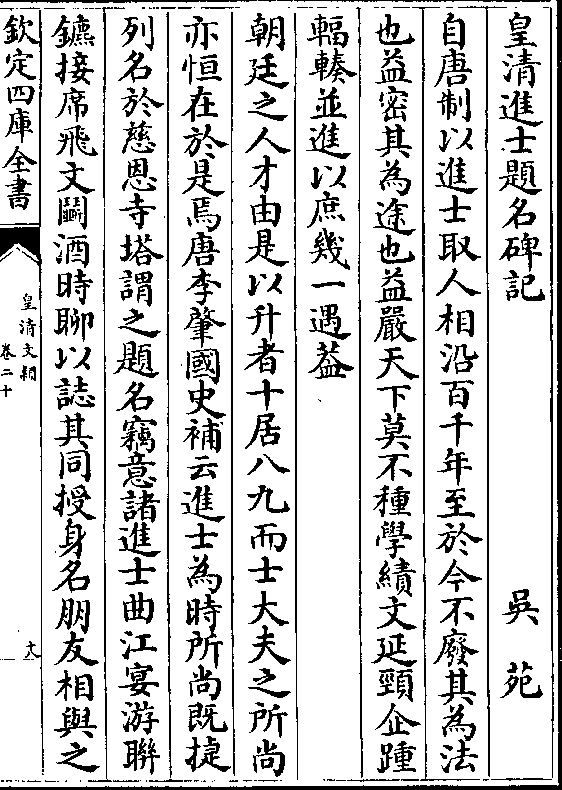 皇清進士題名碑記　　　　　　吳苑
自唐制以進士取人相沿百千年至於今不廢其為法
也益密其為途也益嚴天下莫不種學績文延頸企踵
輻輳並進以庶幾一遇葢
朝廷之人才由是以升者十居八九而士大夫之所尚
亦恒在於是焉唐李肇國史補云進士為時所尚既捷
列名於慈恩寺塔謂之題名竊意諸進士曲江宴游聯
鑣接席飛文鬭酒時聊以誌其同授身名朋友相與之
欽定四庫全書
皇清文穎
卷二十
文